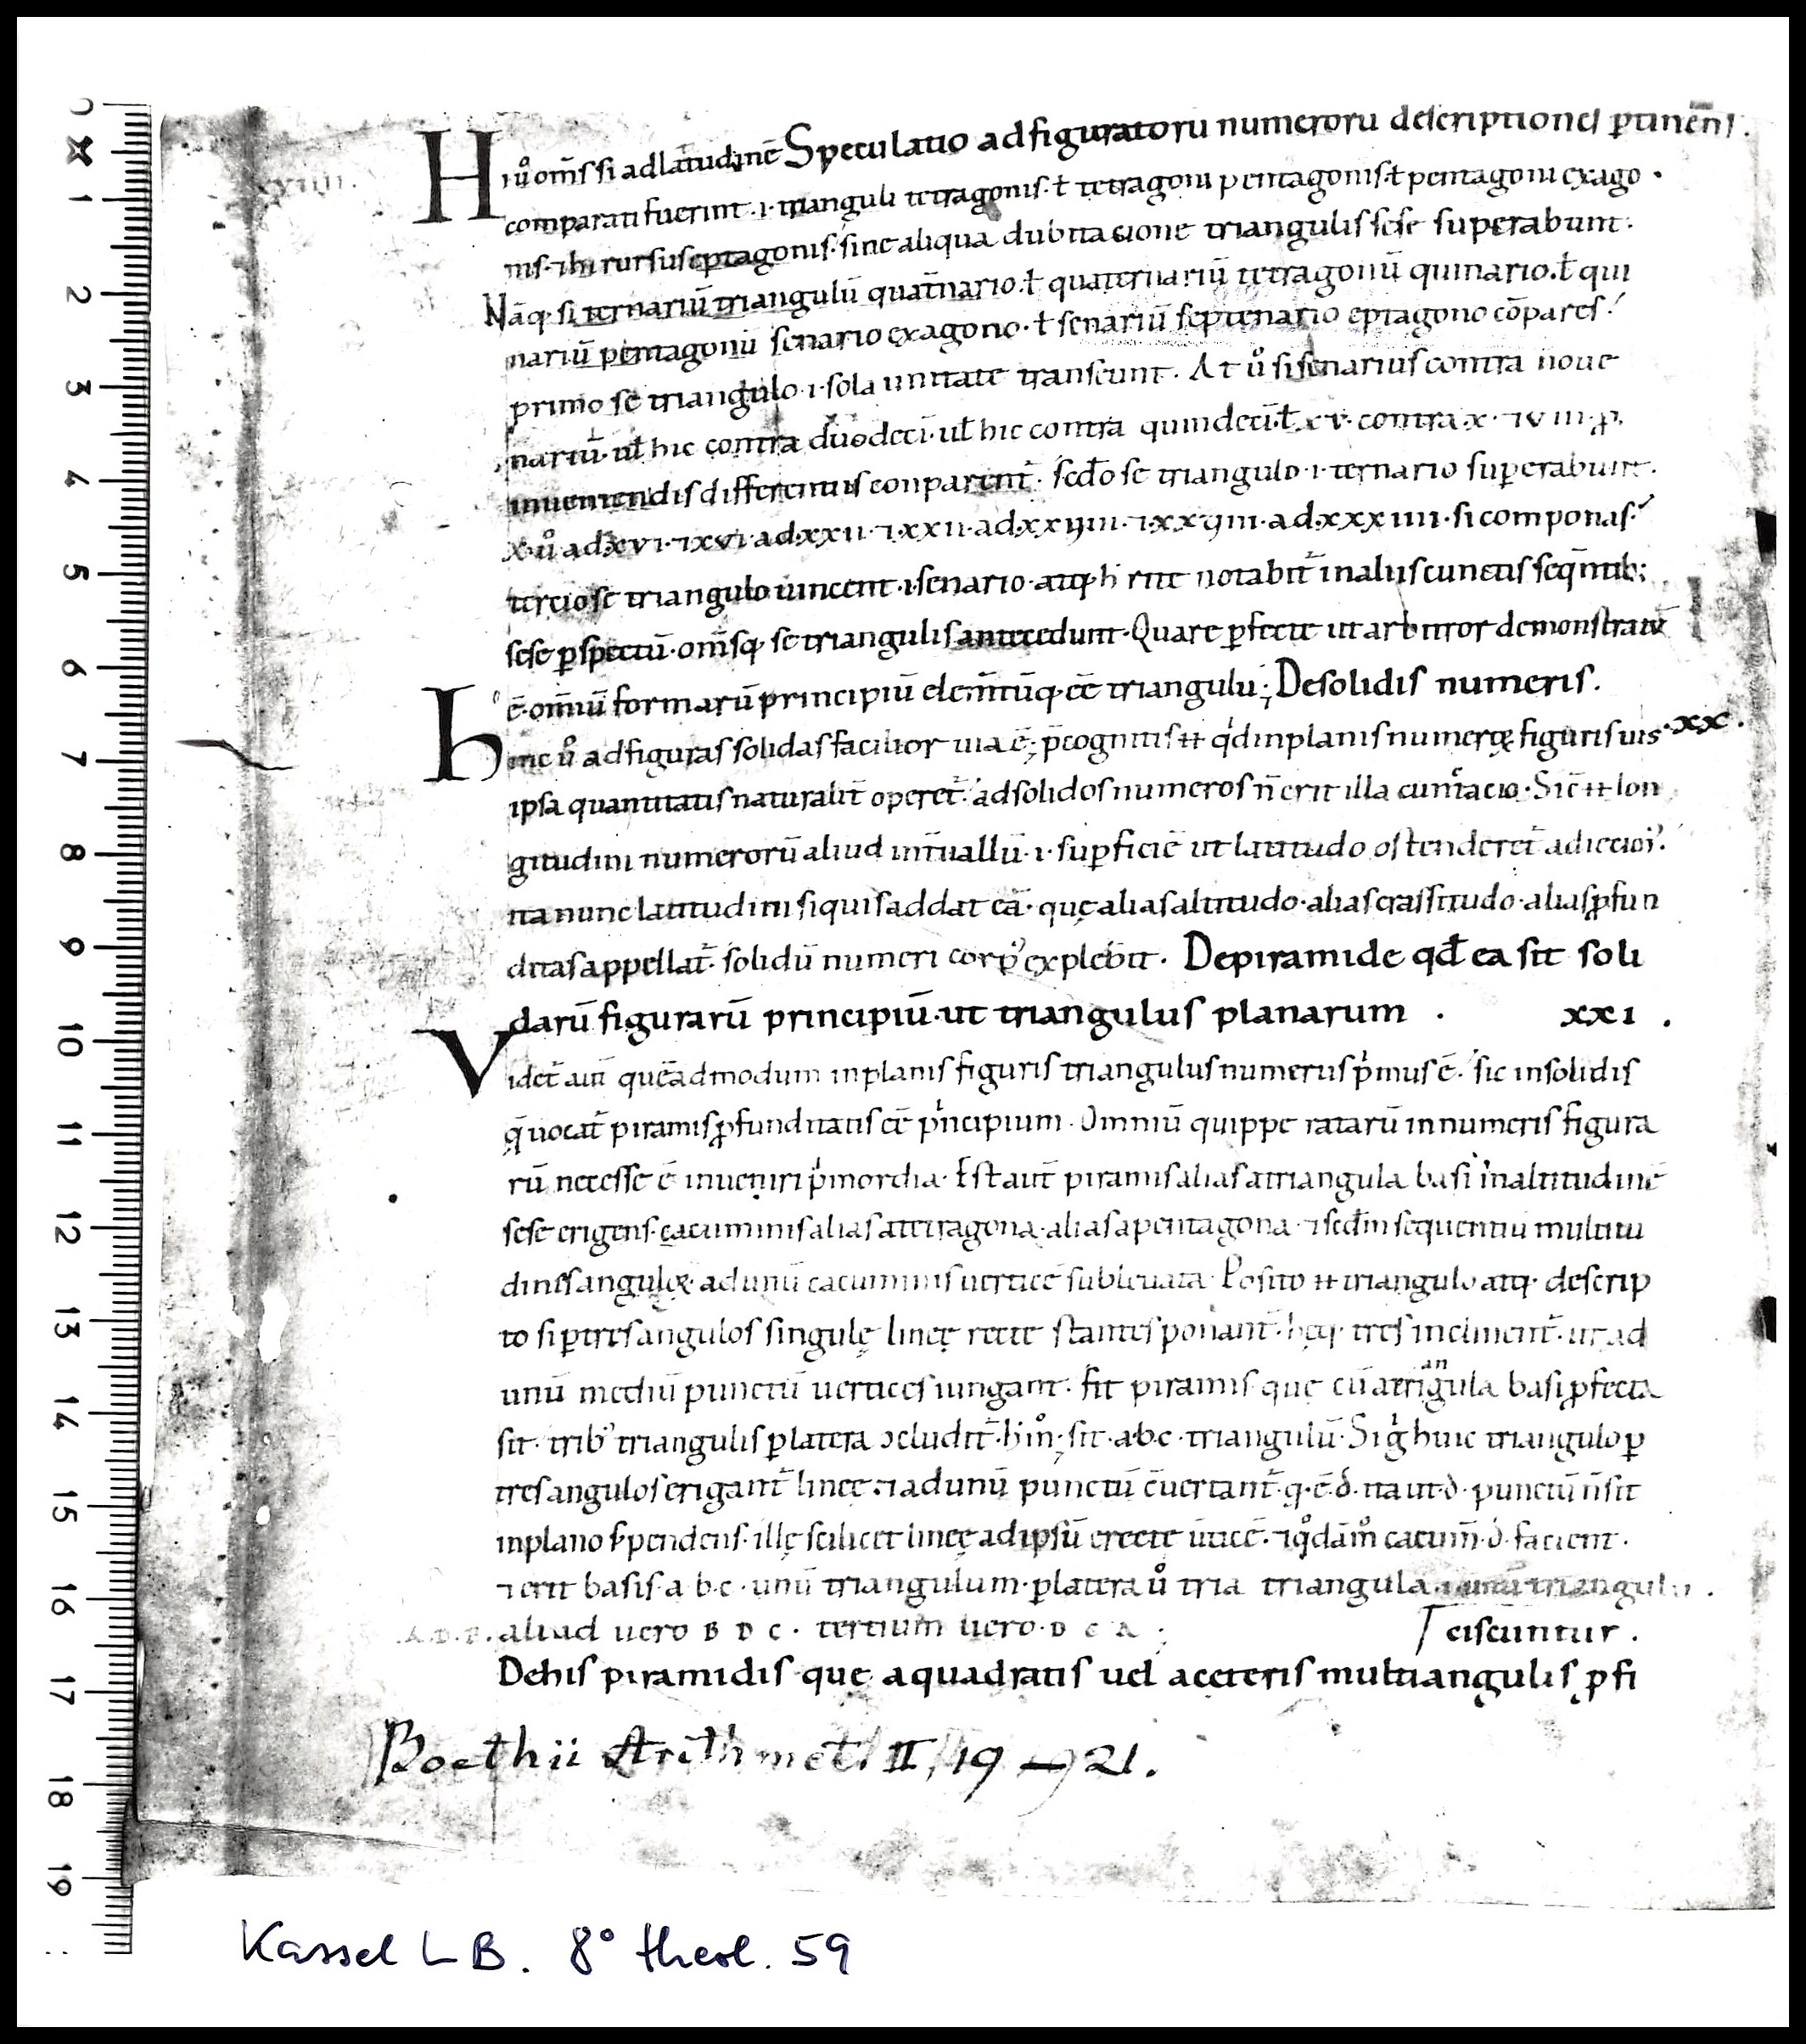 xxiiii.
Hi ů om̄s si ad latitudinē Speculatio ad figuratoru numeroru descriptiones ꝑtinens.
comparati fuerint ·i· trianguli tetragonis · ł tetragoni pentagonis · ł pentagoni exago
nis · ł hi rursus eptagonis · sine aliqua dubitacione triangulis sese superabunt.
Nāq· si ternariū triangulū quat̄nario · ł quaternariū tetragonū quinario · ł qui
nariū pentagonū senario exagono · ł senariū septenario eptagono cōpares ·
primo se triangulo ·i· sola unitate transeunt. At ů si senarius contra noue
nariū · uł hic contra duodeci · uł hic contra quindeci
inueniendis differentiis conparent̄ · sed̄o se triangulo ·i· ternario superabunt.
x · ů ad xvi · ⁊ xvi · ad xxii · ⁊ xxii · ad xxviiii · ⁊ xxviiii · ad xxxviiii · si componas
tercio se triangulo uincent ·i· senario · atq· h̄ rite notabit̄ in aliis cunctis seq̄ntib;
sese ꝑspectū · om̄sq· se triangulis antecedunt. Quare ꝑfecte ut arbitror demonstratū
ē · om̄iū formarū principiū elem̄tūq· eē triangulū; De solidis numeris.
Hinc ů ad figuras solidas facilior uia ē; p̄cognitis ⁊⁊ qd́ in planis numerọꝝ figuris uis ·xx·
ipsa quantitatis naturalit̄ operet̄ · ad solidos numeros n̄ erit illa cunctacio. Sic ⁊⁊ lon
gitudini numerorū aliud int̄uallū ·i· suꝑficiē ut latitudo ostenderet̄ adiecim᾽ ·
ita nunc latitudini si quis addat eā · quę alias altitudo · alias crassitudo · alias ꝓfun
ditas appellat̄ · solidū numeri corp᾽ explebit. De piramide qđ ea sit soli
darū figurarū principiū · ut triangulus planarum · xxi.
Videt̄ aut̄ quēadmodum in planis figuris triangulus numerus pͥmus ē · sic in solidis
q̄ uocat̄ piramis ꝓfunditatis eē pͥncipium. Omniū quippe ratarū in numeris figura
rū necesse ē inueniri pͥmordia. Est aut̄ piramis alias a triangula basi in altitudinē
sese erigens · cacuminis alias a tetragona · alias a pentagona · ⁊ sed̄m sequentiū multitu
dinēs anguloꝝ · ad unū cacuminis uerticē subleuata. Posito ⁊⁊ triangulo atq· descrip
to si ꝑ tres angulos singulę lineę recte stantes ponant̄ · hęq· tres inclinent̄ · ut ad
unū mediū punctū uertices iungant̄ · fit piramis quę cū a triāngula basi ꝓfecta
sit · trib᾽ triangulis ꝑ latera ɔcludit̄ · h̄ m̊; sit · a·b·c · triangulū. Si g̊ huic triangulo ꝑ
tres angulos erigant̄ lineę · ⁊ ad unū punctū c̄uertant̄ · q· ē · d · ita ut · d · punctū n̄ sit
in plano s; pendens · illę scilicet lineę ad ipsū erecte ūticē · ⁊ q̊dām̊ cacum̄ · d · facient.
⁊ erit basis · a b c · unū triangulum · ꝑ latera ů tria triangula · i · unū triangulū.
A·D·B· aliud uero B D C · tertium uero · D C A ;
ciscuntur.
De his piramidis quę a quadratis uel a ceteris multiangulis ꝓfi
Boethii Arithmet. II, 19–21.
Kassel LB. 8° theol. 59
0 1 2 3 4 5 6 7 8 9 10 11 12 13 14 15 16 17 18 19